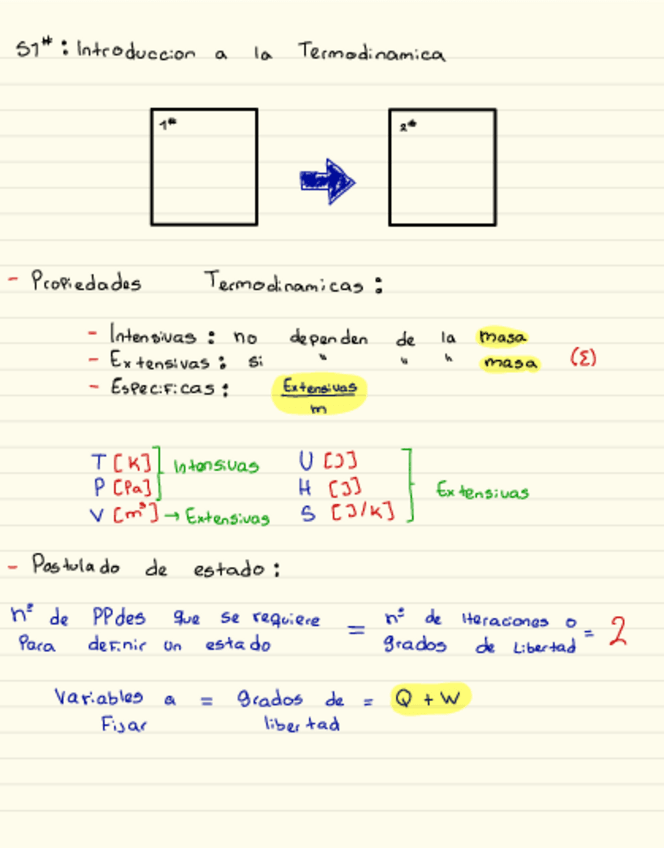 S1#: Introduccion a la Termodinamica
1# 2#
- Propiedades Termodinamicas:
- Intensivas: no dependen de la masa
- Extensivas: si " " " masa (Σ)
- Especificas: Extensivas
m
T [K] Intensivas U [J]
P [Pa] H [J] Extensivas
V [m³] → Extensivas S [J/K]
- Postulado de estado:
nº de PPdes que se requiere = nº de Iteraciones o = 2
Para definir un estado grados de Libertad
Variables a = grados de = Q + W
Fijar libertad